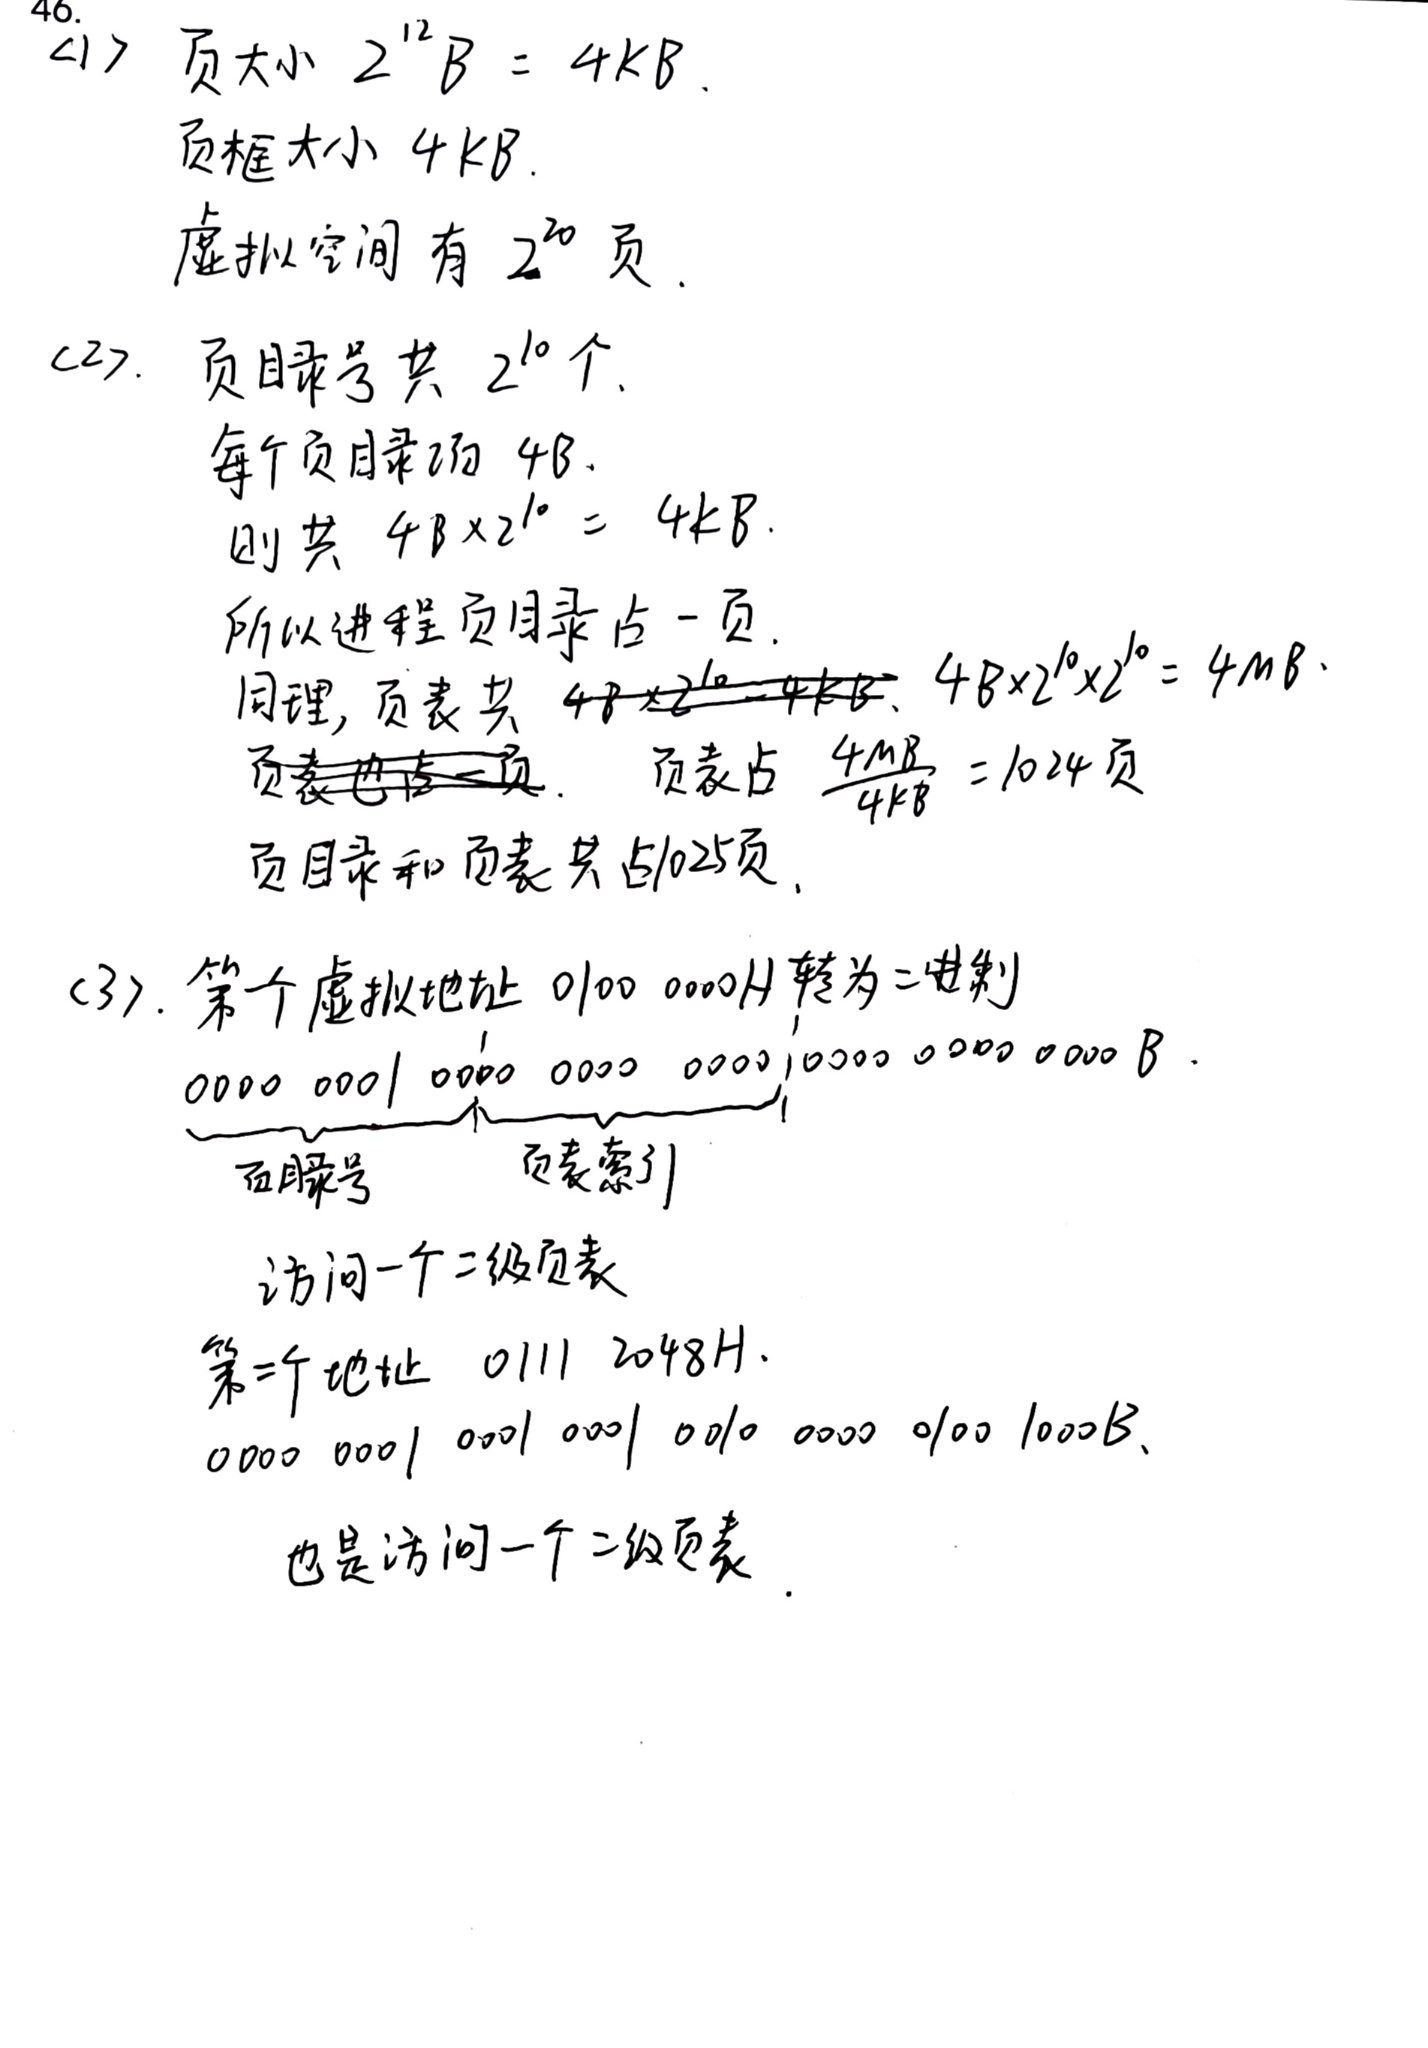 46.
<1> 页大小 2^12 B = 4KB.
页框大小 4KB.
虚拟空间有 2^20 页.
<2>. 页目录号共 2^10 个.
每个页目录项 4B.
则共 4B×2^10 = 4KB.
所以进程页目录占一页.
同理,页表共 4B×2^10=4KB. 4B×2^10×2^10=4MB.
页表也占一页. 页表占 4MB/4KB =1024页
页目录和页表共占1025页.
<3>. 第一个虚拟地址 0100 0000H 转为二进制
0000 0001 0000 0000 0000 0000 0000 0000 B.
页目录号 页表索引
访问一个二级页表
第二个地址 0111 2048H.
0000 0001 0001 0001 0010 0000 0100 1000B.
也是访问一个二级页表.